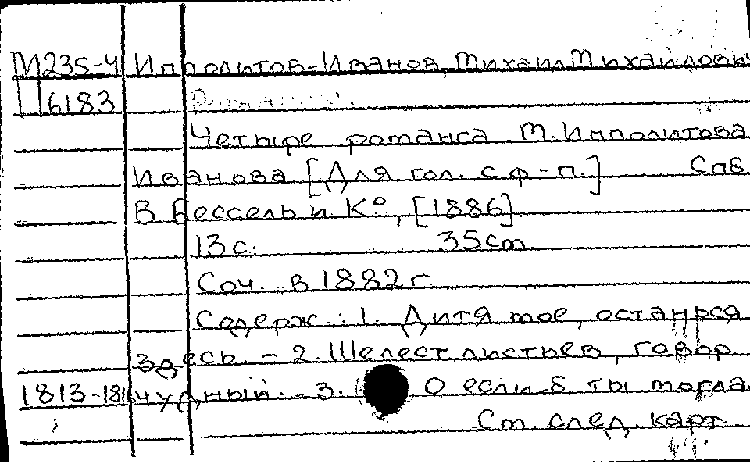 М235-4 Ипполитов-Иванов, Михаил Михайлович
П6183 Романсы.
Четыре романса М. Ипполитова
Иванова [Для гол. с ф-п.] Спб
В Бессель и К°, [1886]
13 с. 35 cm
Соч. в 1882 г
Содерж.: 1. Дитя мое, останься
здесь. - 2. Шелест листьев, говор
1813- чудный. - 3. О если б ты могла
См. след. карт.